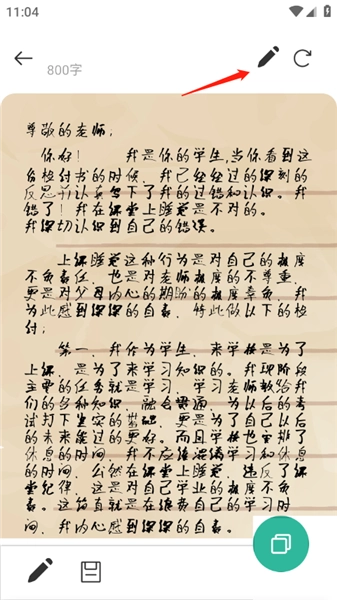 11:04
800字
尊敬的老师，
你好！ 我是你的学生，当你看到这
份检讨书的时候，我已经经过的深刻的
反思并认真写下了我的过错和认识。我
错了！我在课堂上睡觉是不对的。
我深切认识到自己的错误。
上课睡觉这种行为是对自己的极度
不负责任，也是对老师极度的不尊重，
更是对父母内心的期盼的极度辜负，我
为此感到深深的自责，特此做以下的检
讨：
第一，我作为学生，来学校是为了
上课，是为了来学习知识的。我现阶段
主要的任务就是学习，学习老师教给我
们的各种知识，融会贯通，为以后的考
试打下坚实的基础，更是为了自己以后
的未来能过的更好。而且学校也安排了
休息的时间，我不应该混淆学习和休息
的时间，公然在课堂上睡觉，违反了课
堂纪律，这是对自己学业的极度不负
责。这简直就是在浪费自己的学习时
间，我内心感到深深的自责。